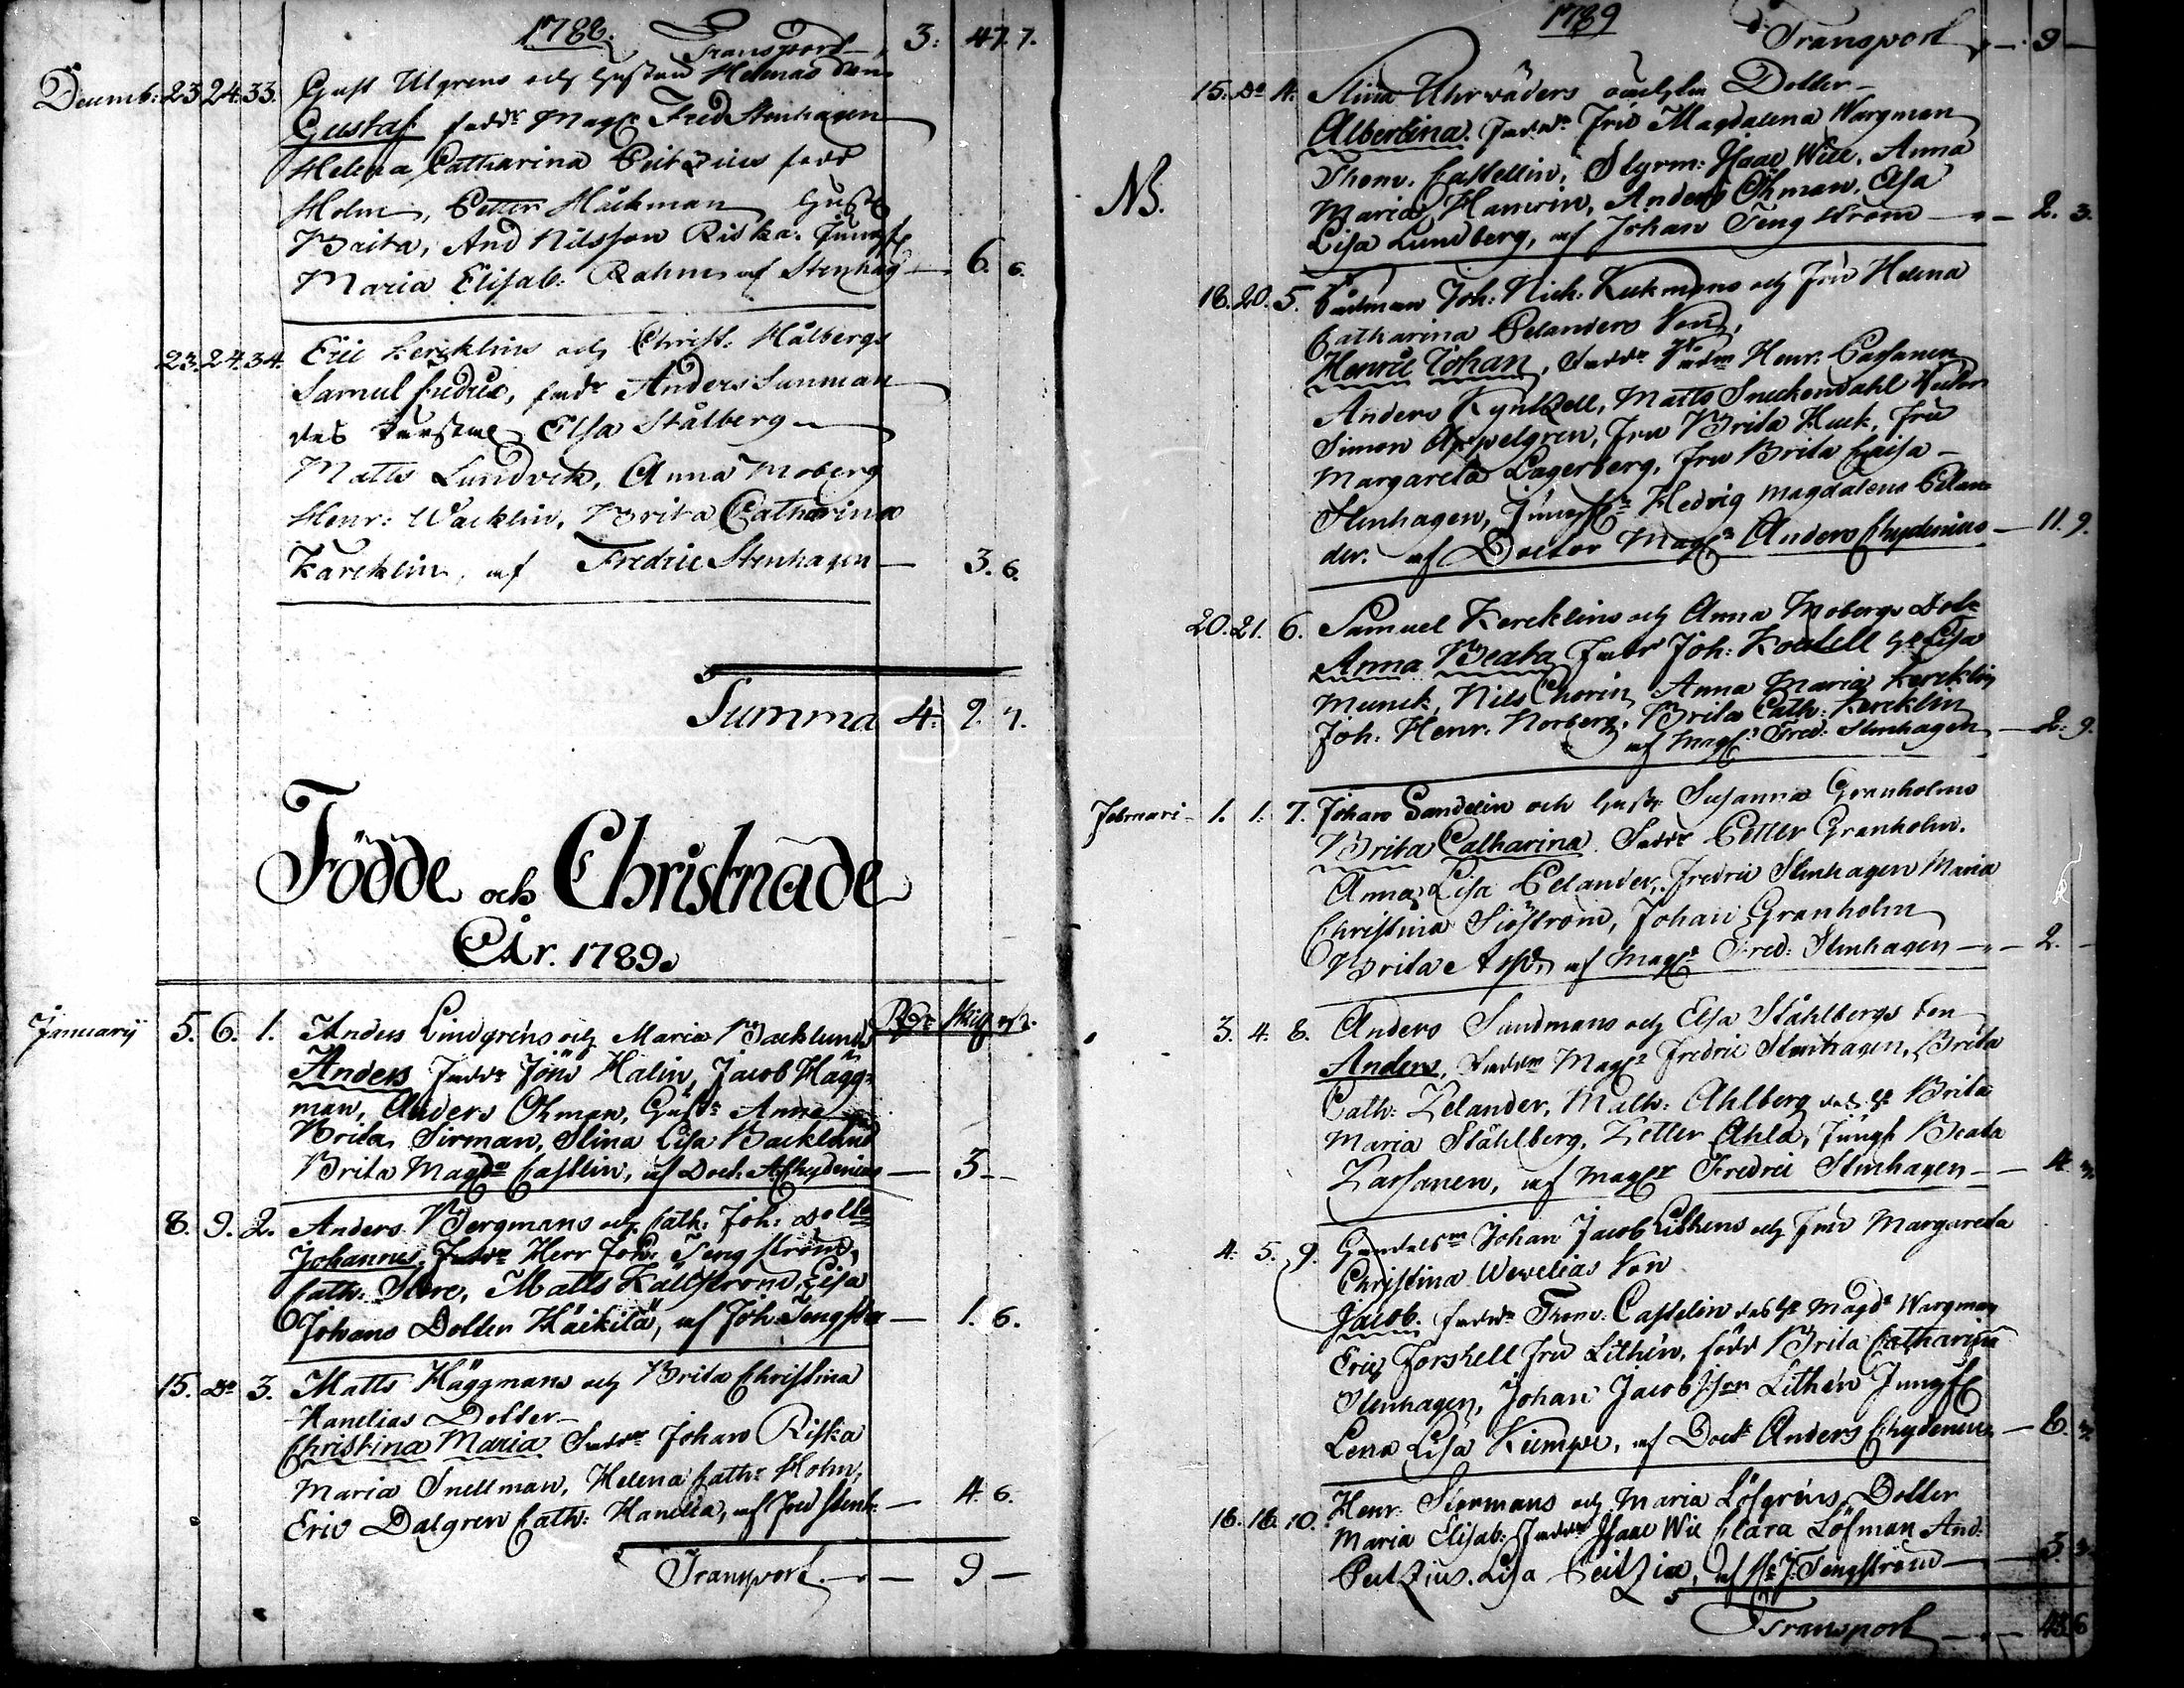 1788.
Transport 3: 47. 7.
Decemb: 23 24. 33. Gust Ulgrens och hustru Helenas Son
Gustaf faddr Magr Fred Stenhagen
Helena Catharina Peitzius fadd
Holm, Petter Håckman hustr
Brita, And Nilsson Riska. Jungfr
Maria Elisab. Rahm af Stenhag — 6. 6.
23. 24. 34. Eric Kercklins och Christ. Hålbergs
Samuel fredric, fadr Anders Sunman
das Elsa Stålberg
Matts Lundvik, Anna Moberg
Henr: Wacklin, Brita Catharina
Karcklin, af Fredric Stenhagen — 3. 6.
Summa 4: 9. 7.
Födde och Christnade
År. 1789.
Rdr Skill rst.
Januarij 5. 6. 1. Anders Lindgréns och Maria Backlunds
Anders Faddr Jöns Halin, Jacob Hägg-
man, Anders Öhman, Hustr Anna
Brita Sirman, Stina Lisa Backlund
Brita Magda Castlin, af Doct. A: Chydenius — 3 -
8. 9. 2. Anders Bergmans och Cath. Joh: Dottr
Johannes, Faddr Herr Joh: Tengström,
Cath: Stere, Matts Källström, Lisa
Johans Dotter Häikilä, af Joh: Tengström — 1. 6.
15. Do 3. Matts Häggmans och Brita Christina
Kanelias Dotter
Christina Maria Faddr Johan Riska
Maria Snellman, Helena Cath: Holm,
Eric Dalgren Cath: Kanelia, af Fred Stenh. — 4. 6.
Transport — 9 —
1789
Transport — 9 —
15. Do 4. Stina Uhrväders oächta Dotter
Albertina. Faddr Fru Magdalena Wargman
Thom. Castellin, Styrm: Isaac Wiik, Anna
NB.
Maria Hamrin, Anders Öhman, Elsa
Lisa Lundberg, af Johan Tengström — 2. 3.
18. 20. 5. Rådman Joh: Nich: Keckmans och Fru Helena
Catharina Pelanders Son,
Henric Johan, Faddr Rådm Henr. Cajanen
Anders Kyntzell, Matts Sneckendahl
Simon Appelgren, Fru Brita Huck, Fru
Margareta Lagerberg, Fru Brita Caisa
Stenhagen, Jungfr Hedvig Magdalena Pelan-
der. af Doctor Magr Anders Chydenius — 11. 9.
20. 21. 6. Samuel Kercklins och Anna Mobergs Dotr
Anna Beata Faddr Joh: H: Lisa
Munck, Nils Chorin, Anna Maria Kercklin
Joh: Henr. Norberg, Brita Cath: Kercklin
af Magr Fred: Stenhagen — 2. 9.
Februari 1. 1. 7. Johan Sandelin och hustr Susanna Granholms
Brita Catharina Faddr Petter Granholm.
Anna Lisa Pelander, Fredric Stenhagen Maria
Christina Siöström, Johan Granholm
Brita af Magr Fred: Stenhagen — 2. -
3. 4. 8. Anders Sundmans och Elsa Ståhlbergs Son
Anders, Faddr Magr Fredric Stenhagen, Brita
Cath: Zelander, Math: Ahlberg das H: Brita
Maria Ståhlberg, Zetter Ahla, Jungf Beata
Zarsanen, af Magr Fredric Stenhagen — 4.
4. 5. 9. Handelsm Johan Jacob Lithens och Fru Margareta
Christina Wevelias Son
Jacob. Faddr Thom: Castelin das H: Magda Wargman
Eric Forskell Fru Lithén, född Brita Catharina
Stenhagen, Johan Jacobsson Lithén Jungfr
Lena Lisa Kiempe, af Doctr Anders Chydenius — 6.
16. 16. 10. Henr. Siermans och Maria Löfgréns Dotter
Maria Elisab: Faddr Isaac Wik Clara Löfman And:
Peitzius. Lisa Peitzia, af Hr J: Tengström — 3.
Transport — 43 6